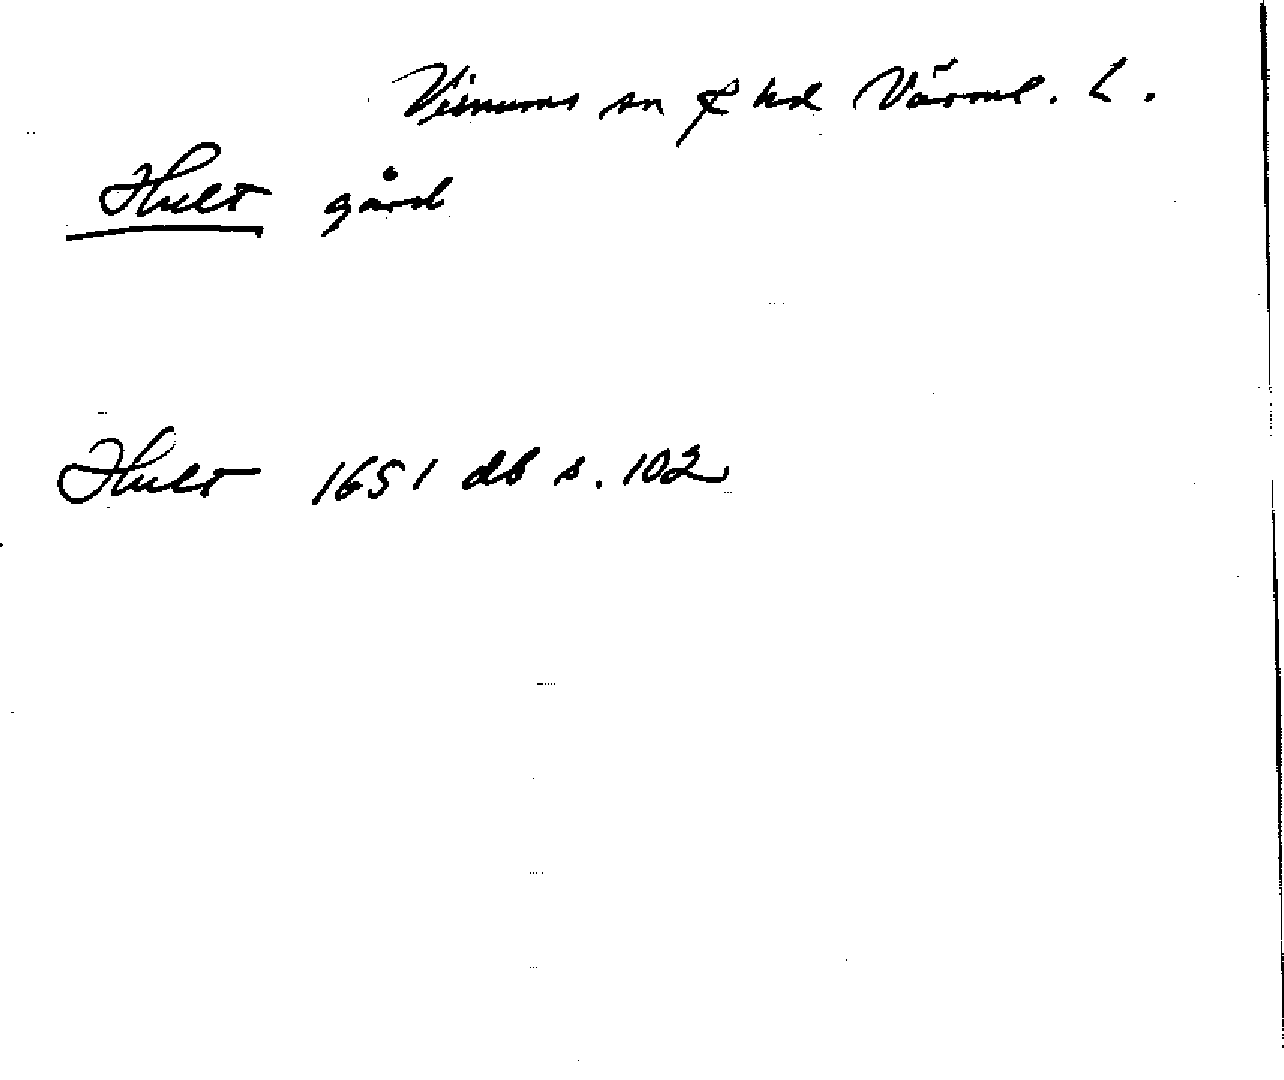 Visnums sn & hd Värml. L.
Hult gård
Hult 1651 db s. 102